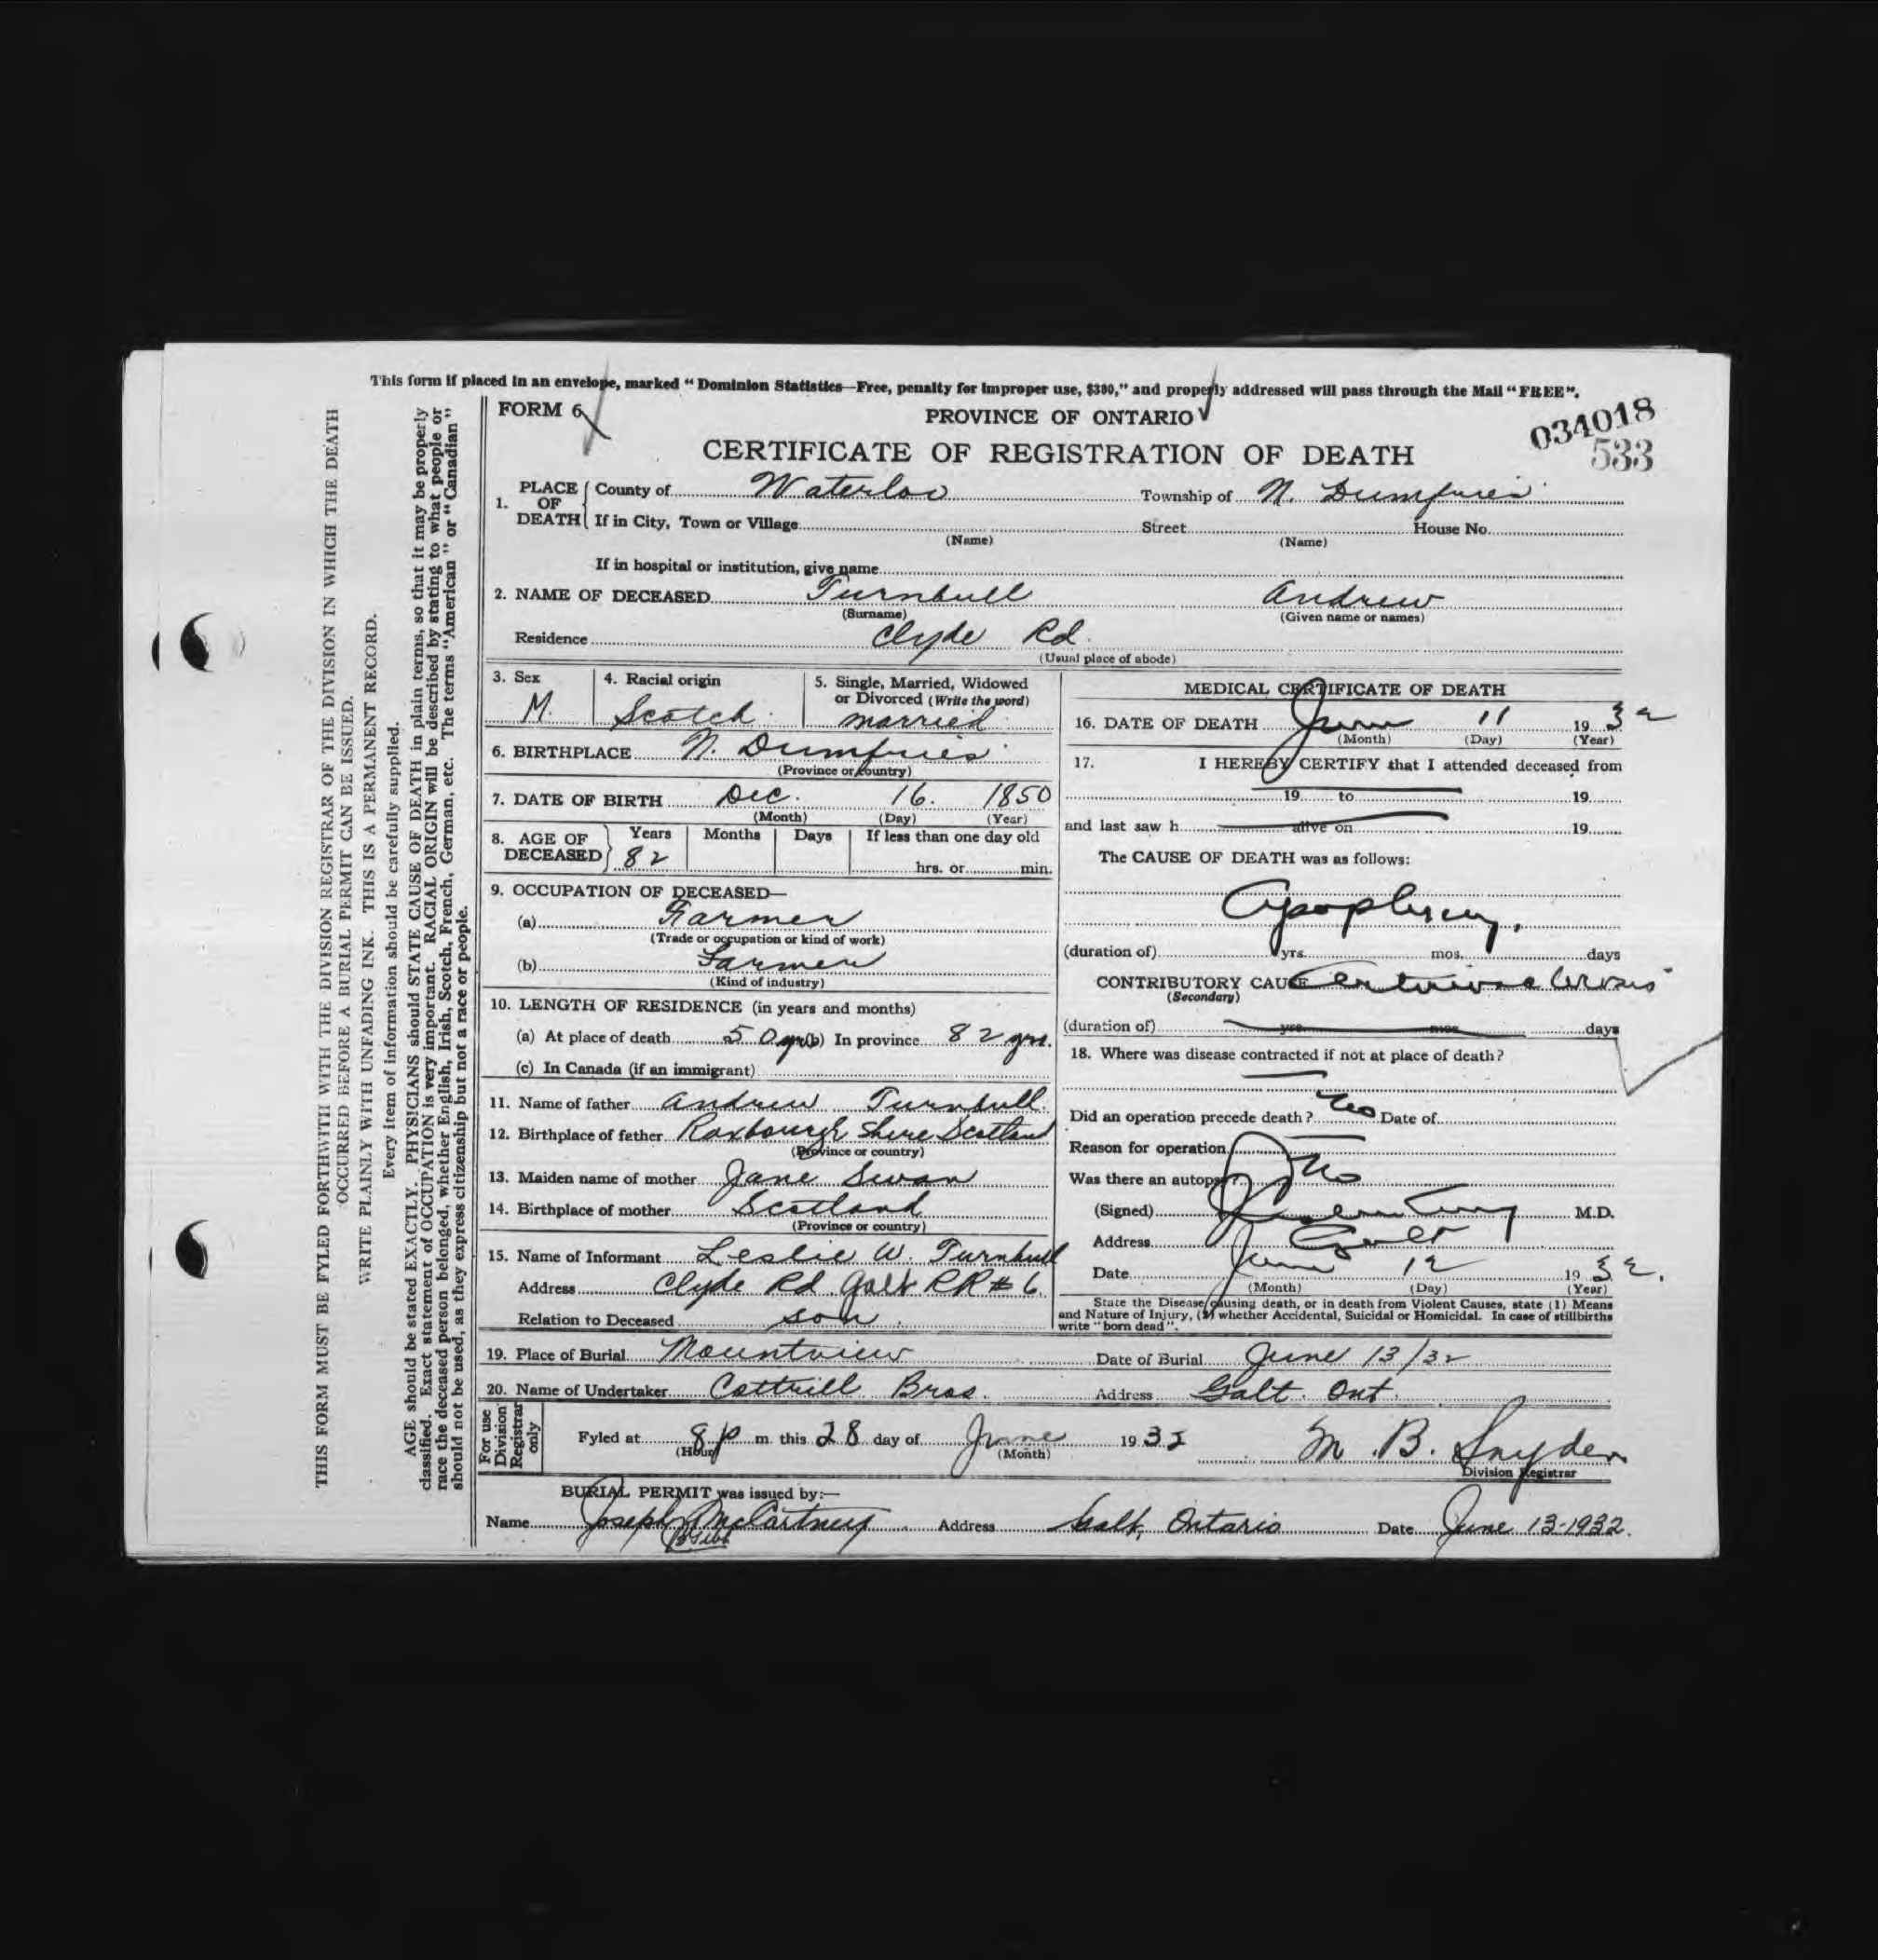 This form if placed in an envelope, marked “Dominion Statistics—Free, penalty for improper use, $300,” and properly addressed will pass through the Mail “FREE”.
FORM 6
PROVINCE OF ONTARIO
034018
CERTIFICATE OF REGISTRATION OF DEATH
533
1. PLACE OF DEATH County of Waterloo Township of N. Dumfries
If in City, Town or Village Street House No.
(Name) (Name)
If in hospital or institution, give name
2. NAME OF DECEASED Turnbull Andrew
(Surname) (Given name or names)
Residence Clyde Rd.
(Usual place of abode)
3. Sex 4. Racial origin 5. Single, Married, Widowed or Divorced (Write the word)
M. Scotch married
6. BIRTHPLACE N. Dumfries
(Province or country)
7. DATE OF BIRTH Dec. 16. 1850
(Month) (Day) (Year)
8. AGE OF DECEASED Years Months Days If less than one day old
82 hrs. or min.
9. OCCUPATION OF DECEASED—
(a) Farmer
(Trade or occupation or kind of work)
(b) Farmer
(Kind of industry)
10. LENGTH OF RESIDENCE (in years and months)
(a) At place of death 50 yrs (b) In province 82 yrs.
(c) In Canada (if an immigrant)
11. Name of father Andrew Turnbull
12. Birthplace of father Roxbourgh Shire Scotland
(Province or country)
13. Maiden name of mother Jane Swan
14. Birthplace of mother Scotland
(Province or country)
15. Name of Informant Leslie W. Turnbull
Address Clyde Rd Galt RR # 6.
Relation to Deceased son.
MEDICAL CERTIFICATE OF DEATH
16. DATE OF DEATH June 11 1932
(Month) (Day) (Year)
17. I HEREBY CERTIFY that I attended deceased from
19 to 19
and last saw h alive on 19
The CAUSE OF DEATH was as follows:
Apoplexy.
(duration of) yrs. mos. days
CONTRIBUTORY CAUSE
(Secondary)
(duration of) yrs. mos. days
18. Where was disease contracted if not at place of death?
Did an operation precede death? No Date of
Reason for operation
Was there an autopsy? No
(Signed) M.D.
Address Galt
Date June 12 1932.
(Month) (Day) (Year)
State the Disease causing death, or in death from Violent Causes, state (1) Means
and Nature of Injury, (2) whether Accidental, Suicidal or Homicidal. In case of stillbirths
write “born dead”.
19. Place of Burial Mountview Date of Burial June 13/32
20. Name of Undertaker Cottrill Bros. Address Galt. Ont.
For use Division Registrar only
Fyled at 8 p m. this 28 day of June 1932 M. B. Snyder
(Hour) (Month) Division Registrar
BURIAL PERMIT was issued by:—
Name Joseph McCartney Address Galt, Ontario Date June 13-1932.
THIS FORM MUST BE FYLED FORTHWITH WITH THE DIVISION REGISTRAR OF THE DIVISION IN WHICH THE DEATH
OCCURRED BEFORE A BURIAL PERMIT CAN BE ISSUED.
WRITE PLAINLY WITH UNFADING INK. THIS IS A PERMANENT RECORD.
Every item of information should be carefully supplied.
AGE should be stated EXACTLY. PHYSICIANS should STATE CAUSE OF DEATH in plain terms, so that it may be properly
classified. Exact statement of OCCUPATION is very important. RACIAL ORIGIN will be described by stating to what people or
race the deceased person belonged, whether English, Irish, Scotch, French, German, etc. The terms “American” or “Canadian”
should not be used, as they express citizenship but not a race or people.